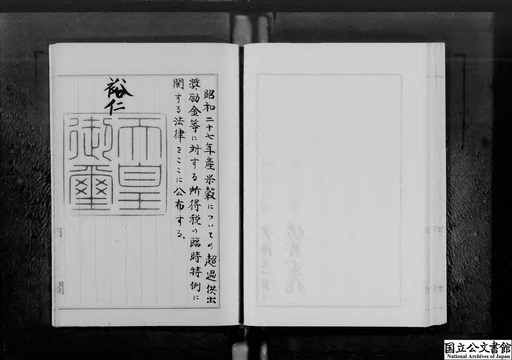 昭和二十七年産米穀についての超過供出
奨励金等に対する所得税の臨時特例に
関する法律をここに公布する。
裕仁
天皇
御璽
国立公文書館
National Archives of Japan